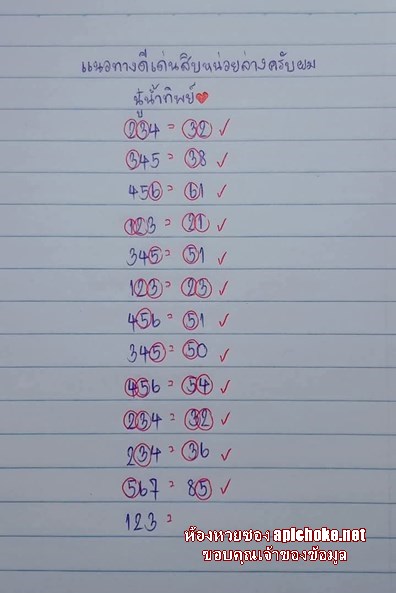 แนวทางดีเด่นสิบหน่วยล่างครับผม
นู๋น้ำทิพย์
234 = 32 ✓
345 = 38 ✓
456 = 61 ✓
123 = 21 ✓
345 = 51 ✓
123 = 23 ✓
456 = 51 ✓
345 = 50 ✓
456 = 54 ✓
234 = 32 ✓
234 = 36 ✓
567 = 85 ✓
123 =
ห้องหวยซอง apichoke.net
ขอบคุณเจ้าของข้อมูล